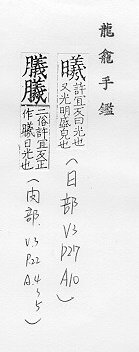 龍龕手鑑
曦許宜反日光也
又光明盛皃也
(日部
V3
P27
A10)
𦡶䑄二俗許宜反正
作曦日光也
(肉部.
V3
P22
A.4、5)